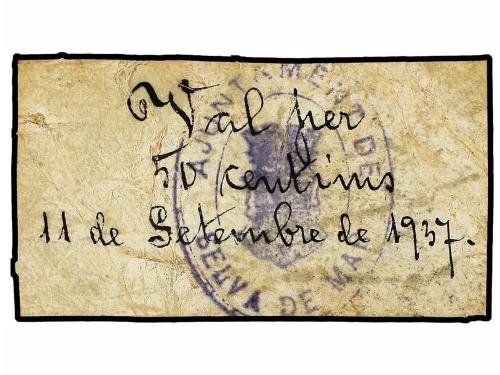 Val per
50 centims
11 de Setembre de 1937.
AJUNTAMENT DE
SELVA DE MAR